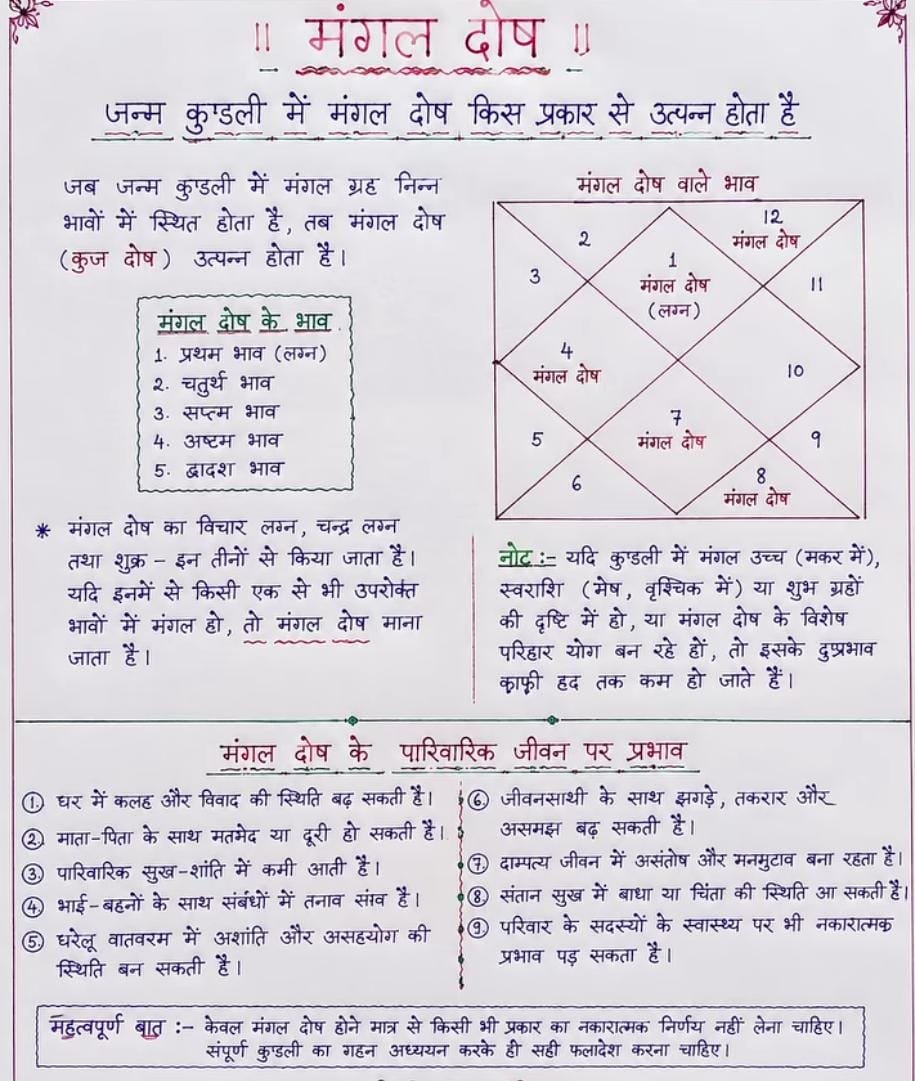 ॥ मंगल दोष ॥
जन्म कुण्डली में मंगल दोष किस प्रकार से उत्पन्न होता है
जब जन्म कुण्डली में मंगल ग्रह निन्न
भावों में स्थित होता है, तब मंगल दोष
(कुज दोष) उत्पन्न होता है।
मंगल दोष के भाव
1. प्रथम भाव (लग्न)
2. चतुर्थ भाव
3. सप्तम भाव
4. अष्टम भाव
5. द्वादश भाव
मंगल दोष वाले भाव
12
मंगल दोष
2
1
मंगल दोष
(लग्न)
3
11
4
मंगल दोष
10
7
मंगल दोष
5
9
6
8
मंगल दोष
* मंगल दोष का विचार लग्न, चन्द्र लग्न
तथा शुक्र – इन तीनों से किया जाता है।
यदि इनमें से किसी एक से भी उपरोक्त
भावों में मंगल हो, तो मंगल दोष माना
जाता है।
नोट :– यदि कुण्डली में मंगल उच्च (मकर में),
स्वराशि (मेष, वृश्चिक में) या शुभ ग्रहों
की दृष्टि में हो, या मंगल दोष के विशेष
परिहार योग बन रहे हों, तो इसके दुष्प्रभाव
काफी हद तक कम हो जाते हैं।
मंगल दोष के पारिवारिक जीवन पर प्रभाव
① घर में कलह और विवाद की स्थिति बढ़ सकती है।
② माता-पिता के साथ मतमेद या दूरी हो सकती है।
③ पारिवारिक सुख-शांति में कमी आती है।
④ भाई-बहनों के साथ संबंधों में तनाव है।
⑤ घरेलू वातवरम में अशांति और असहयोग की
स्थिति बन सकती है।
⑥ जीवनसाथी के साथ झगड़े, तकरार और
असमझ बढ़ सकती है।
⑦ दाम्पत्य जीवन में असंतोष और मनमुटाव बना रहता है।
⑧ संतान सुख में बाधा या चिंता की स्थिति आ सकती है।
⑨ परिवार के सदस्यों के स्वास्थ्य पर भी नकारात्मक
प्रभाव पड़ सकता है।
महत्वपूर्ण बात :– केवल मंगल दोष होने मात्र से किसी भी प्रकार का नकारात्मक निर्णय नहीं लेना चाहिए।
संपूर्ण कुण्डली का गहन अध्ययन करके ही सही फलादेश करना चाहिए।